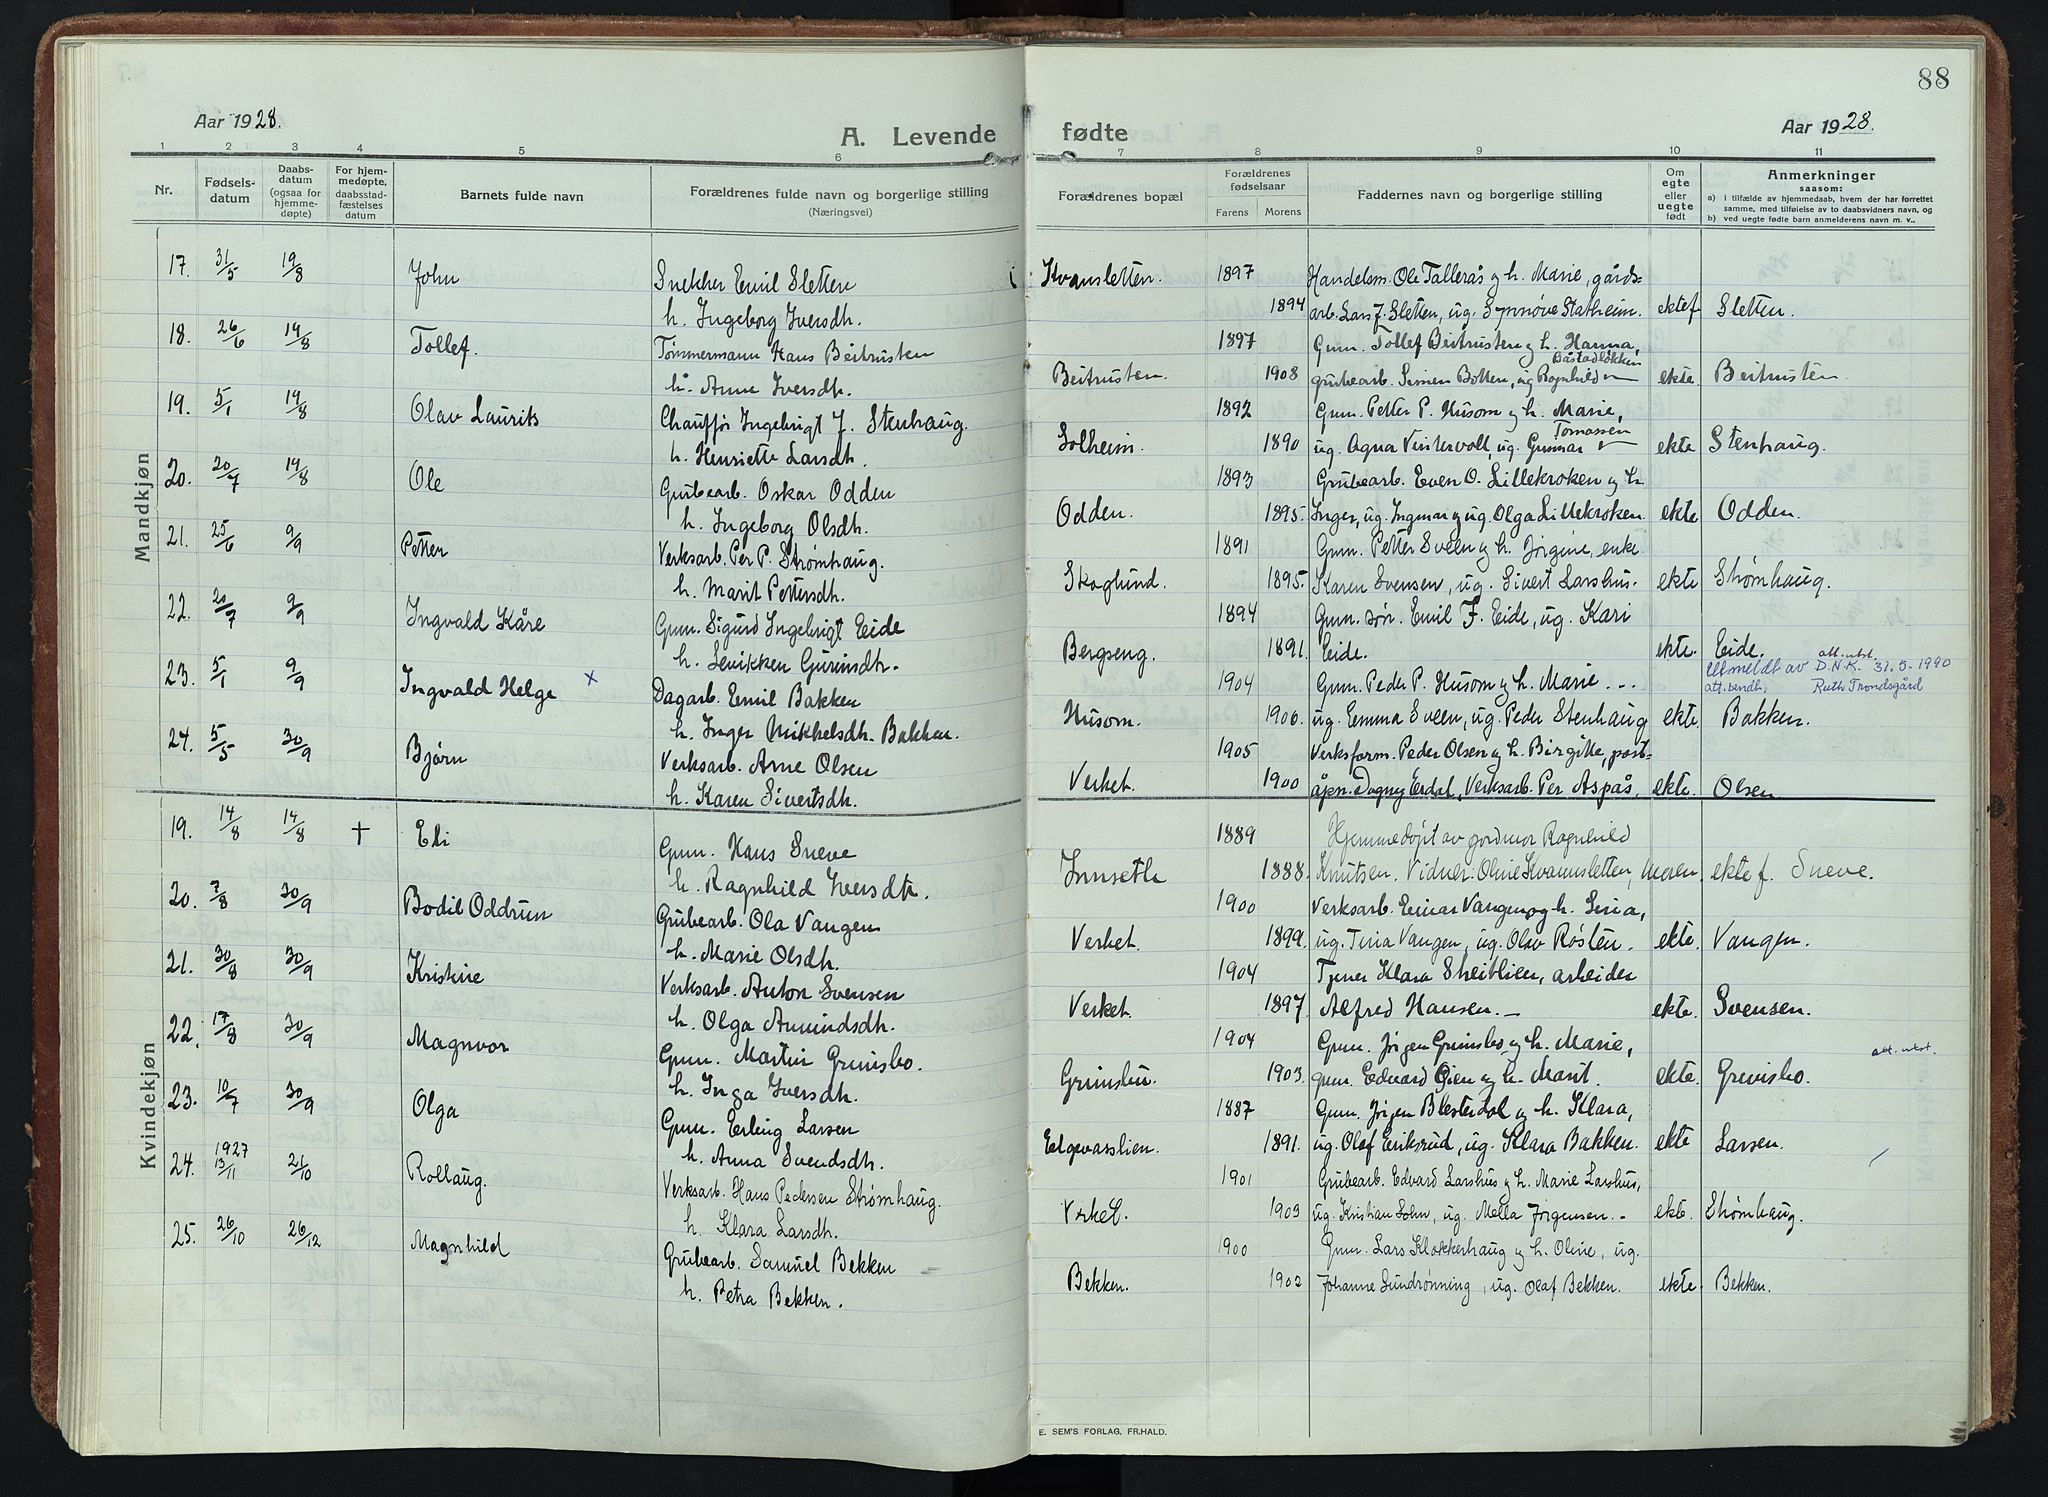 88
Aar 1928.
A. Levende
fødte
Aar 1928.
1 2 3 4 5 6 7 8 9 10 11
Nr.
Fødsels-
datum
Daabs-
datum
(ogsaa for
hjemme-
døpte)
For hjem-
medøpte,
daabsstad-
fæstelses
datum
Barnets fulde navn
Forældrenes fulde navn og borgerlige stilling
(Næringsvei)
Forældrenes bopæl
Forældrenes
fødselsaar
Farens Morens
Faddernes navn og borgerlige stilling
Om
egte
eller
uegte
født
Anmerkninger
saasom:
a) i tilfælde av hjemmedaab, hvem der har forrettet
samme, med tilføielse av to daabsvidners navn, og
b) ved uegte fødte barn anmelderens navn m. v.,
Mandkjøn
17. 31/5 19/8 John Snekker Emil Sletten Kvamsletten. 1897 Handelsm. Ole Tallerås og h. Marie, gårds-
h. Ingeborg Iversdh. 1894 arb. Lars J. Sletten, ug. Synnøve Statheim. ektef Sletten.
18. 26/6 19/8 Tollef. Tømmermann Hans Beitrusten 1897 Gmn. Tollef Beitrusten og h. Hanna,
Båstadløkken
h. Anne Iversdh. Beitrusten. 1908 grubearb. Simen Botten, ug Ragnhild ekte. Beitrusten.
19. 5/1 19/8 Olav Laurits Chauffør Ingebrigt J. Stenhaug. 1892 Gmn. Petter P. Husom og h. Marie,
Tomassen
h. Henriette Larsdh. Solheim. 1890 ug. Agna Vintervoll, ug. Gunnar ekte Stenhaug.
20. 20/7 19/8 Ole Grubearb. Oskar Odden 1893 Grubearb. Even O. Lillekroken og h
h. Ingeborg Olsdh. Odden. 1895. Inger, ug. Ingmar og ug. Olga Lillekroken. ekte Odden.
21. 25/6 9/9 Petter Verksarb. Per P. Strømhaug. 1891 Gmn. Petter Sveen og h. Jørgine, enke
h. Marit Pettersdh. Skoglund. 1895. Karen Svensen, ug. Sivert Larshus. ekte Strømhaug.
22. 20/7 9/9 Ingvald Kåre Gmn. Sigurd Ingebrigt Eide 1894 Gmn. sør. Emil F. Eide, ug. Kari
h. Lenikken Gurinsdtr. Bergseng. 1891. Eide. ekte. Eide.
att. utst.
Utmeldt av D.N.K. 31.5-1990
att. bendt, Ruth Trondsgård
23. 5/1 9/9 Ingvald Helge x Dagarb. Emil Bakken 1904 Gmn. Peder P. Husom og h. Marie. --
h. Inger Mikkelsdh. Bakken. Husom. 1906. ug. Emma Sveen, ug. Peder Stenhaug ekte Bakken.
24. 5/5 30/9 Bjørn Verksarb. Arne Olsen 1905 Verksform. Peder Olsen og h. Birgitte, post-
h. Karen Sivertsdh. Verket. 1900 åpn. Dagny Erdal, Verksarb. Per Aspås. ekte. Olsen
Kvindekjøn
19. 14/8 14/8 + Eli Gmn. Hans Sneve 1889 Hjemmedøpt av jordmor Ragnhild
h. Ragnhild Iversdtr. Innseth 1888. Knutsen. Vidner: Oline Kvamsletten, Moren. ekte f. Sneve.
20. 7/8 30/9 Bodil Oddrun Grubearb. Ola Vangen 1900 Verksarb. Einar Vangen og h. Lina,
h. Marie Olsdh. Verket. 1899. ug. Tina Vangen, ug. Olav Røsten. ekte. Vangen.
21. 30/8 30/9 Kristine Verksarb. Anton Svensen 1904 Tjener Klara Skeiblien, arbeider
h. Olga Amundsdh. Verket. 1897. Alfred Hansen. — ekte. Svensen.
22. 17/8 30/9 Magnvor Gmn. Martin Grimsbo. 1904 Gmn. Jørgen Grimsbo og h. Marie,
att. utst.
h. Inga Iversdh. Grimsbu. 1903. gmn. Edvard Øien og h. Marit. ekte. Grimsbo.
23. 10/7 30/9 Olga Gmn. Erling Larsen 1887 Gmn. Jørgen Blesterdal og h. Klara,
h. Anna Svendsdh. Eelgvasslien. 1891. ug. Olaf Eriksrud, ug. Klara Bakken. ekte Larsen.
24. 1927 13/11 21/10 Rollaug. Verksarb. Hans Pedersen Strømhaug. 1901 Grubearb. Edvard Larshus og h. Marie Larshus,
h. Klara Larsdh. Verket. 1903 ug. Kristian Sohn, ug. Mella Jørgensen. - ekte. Strømhaug.
25. 26/10 26/12 Magnhild Grubearb. Samuel Bekken 1900 Gmn. Lars Klokkerhaug og h. Oline, ug.
h. Petra Bekken. Bekken. 1902 Johanne Sundrønning, ug. Olaf Bekken. ekte. Bekken.
E. SEM'S FORLAG, FR.HALD.